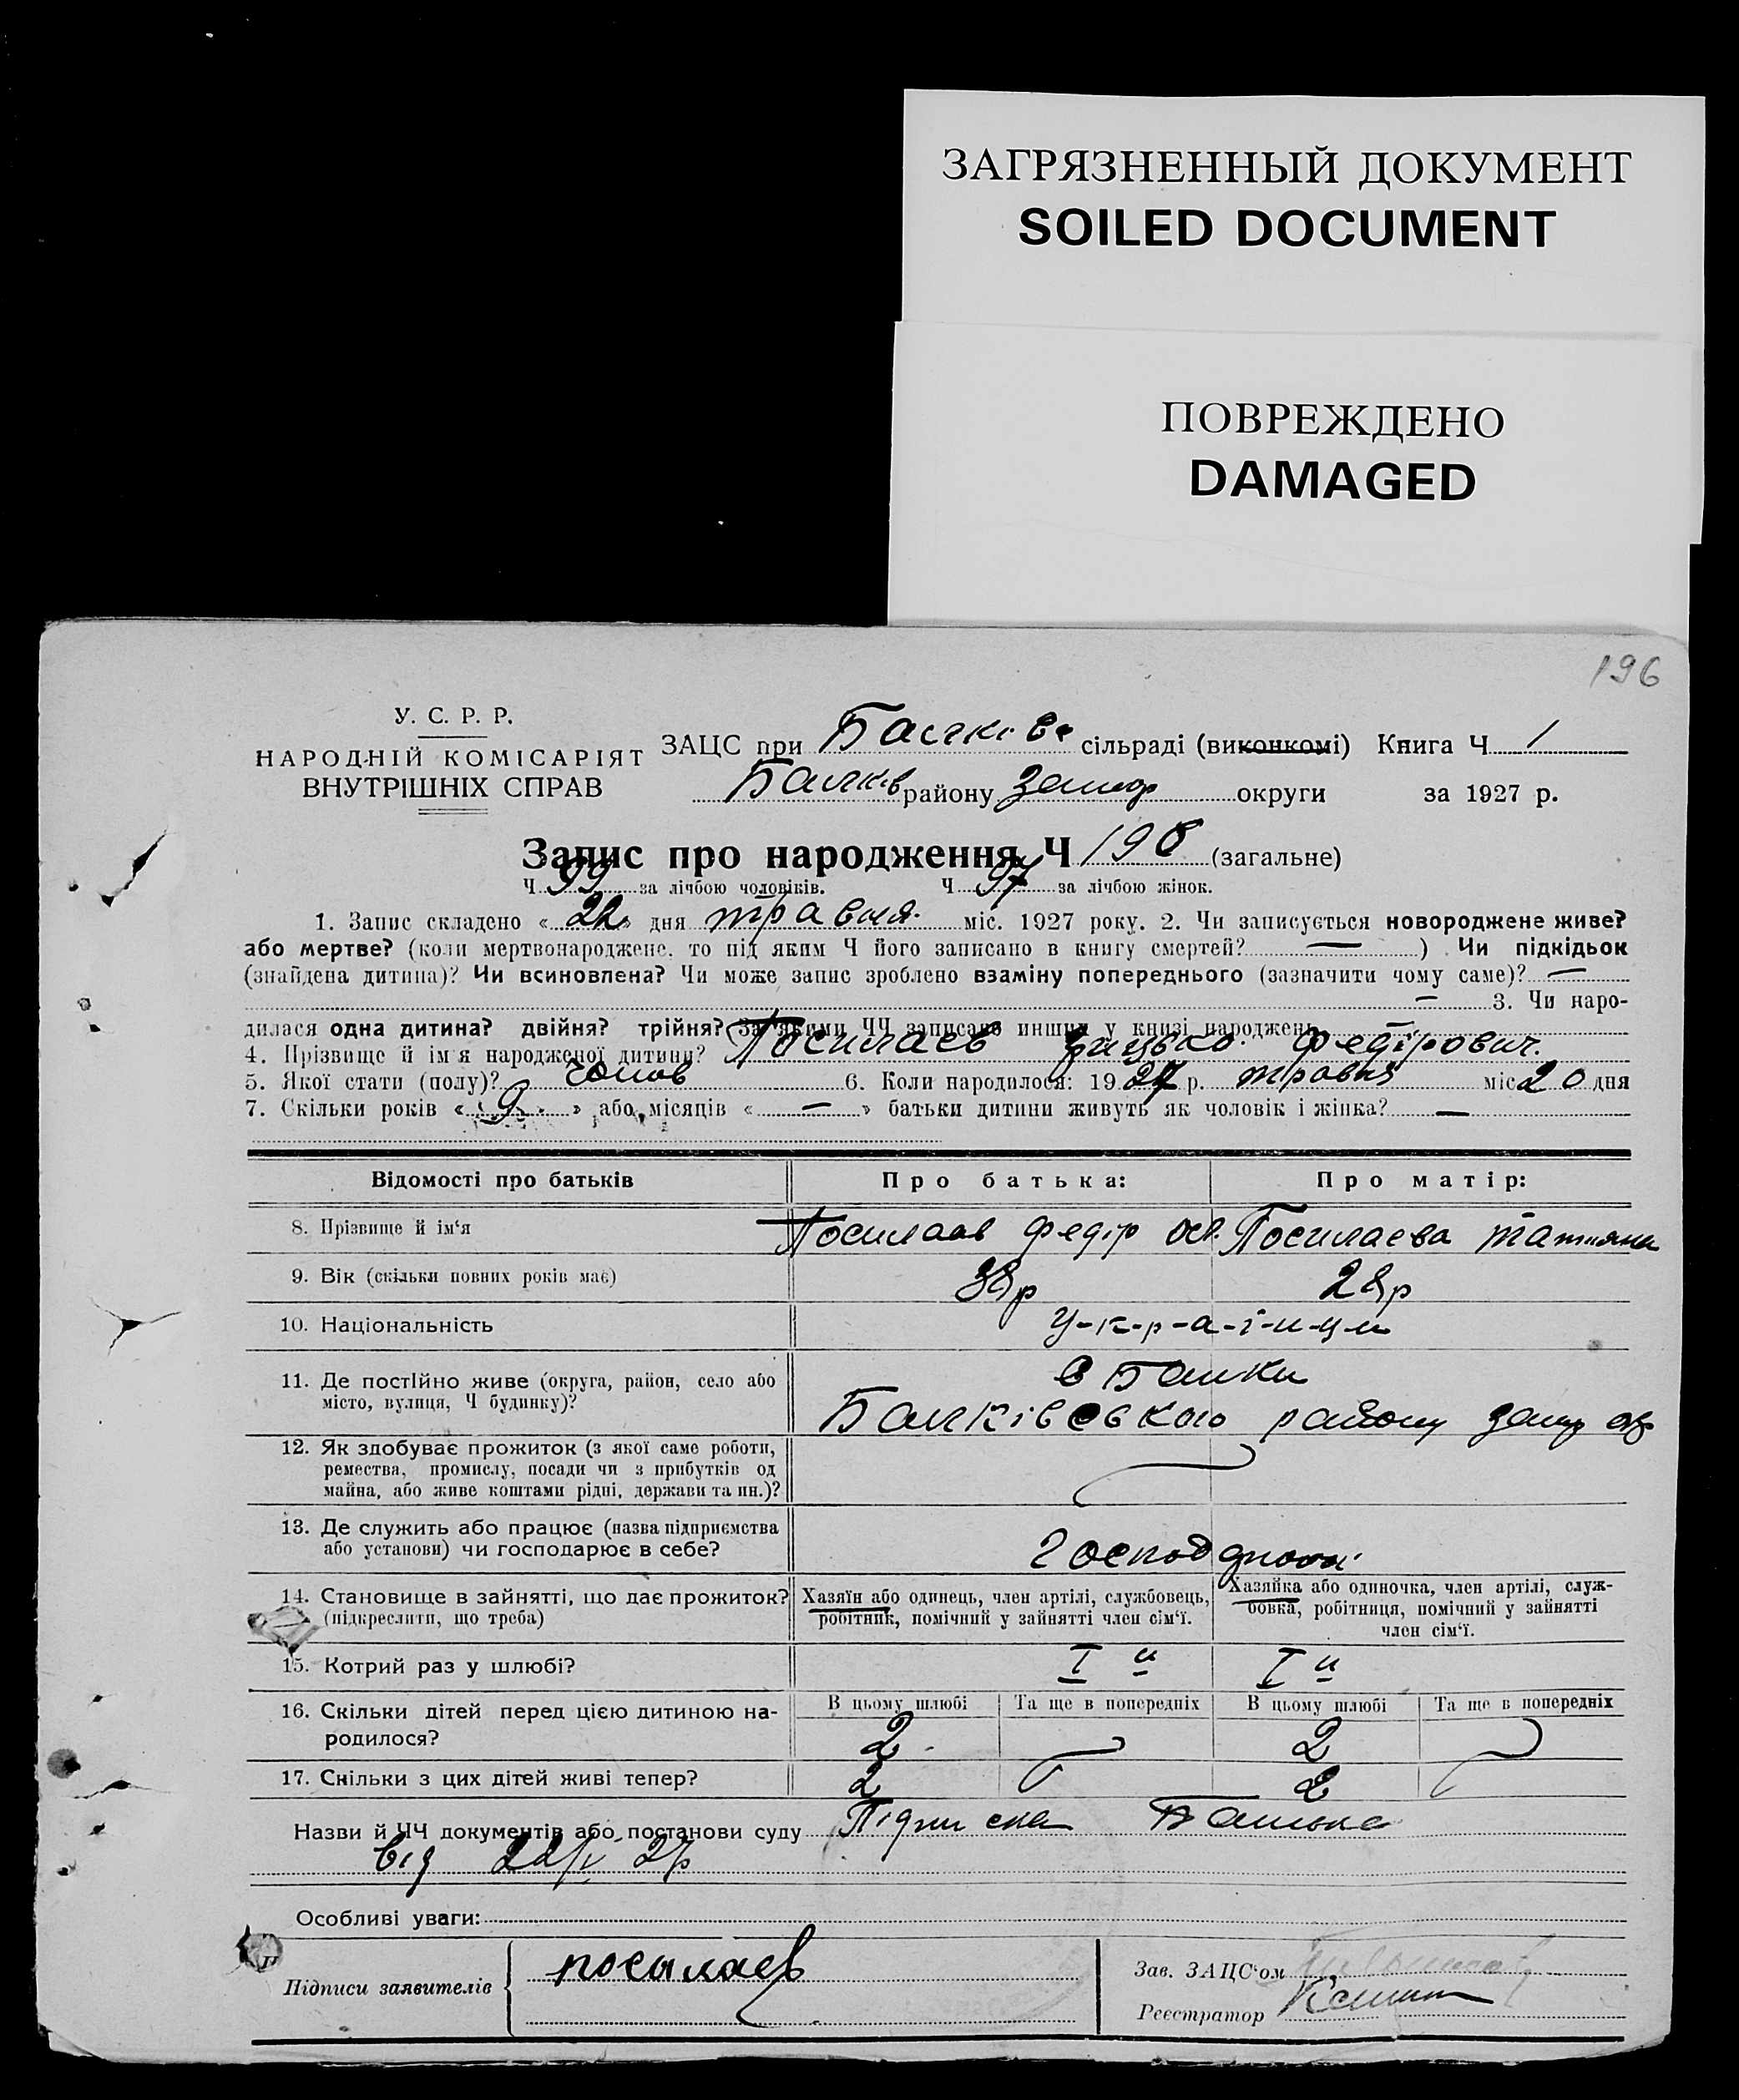 ЗАГРЯЗНЕННЫЙ ДОКУМЕНТ
SOILED DOCUMENT
ПОВРЕЖДЕНО
DAMAGED
196
У. С. Р. Р.
НАРОДНІЙ КОМІСАРІЯТ
ВНУТРІШНІХ СПРАВ
ЗАЦС при Балкiвс сільраді (виконкомі) Книга Ч 1
Балкiв району Запор округи за 1927 р.
Запис про народження Ч 198 (загальне)
Ч 99 за лічбою чоловіків. Ч 97 за лічбою жінок.
1. Запис складено « 22 » дня травня міс. 1927 року. 2. Чи записується новороджене живе?
або мертве? (коли мертвонароджене, то під яким Ч його записано в книгу смертей? — ) Чи підкідьок
(знайдена дитина)? Чи всиновлена? Чи може запис зроблено взаміну попереднього (зазначити чому саме)? —
— 3. Чи наро-
дилася одна дитина? двійня? трійня? За якими ЧЧ записано инших у книзі народжень —
4. Прізвище й ім'я народженої дитини? Посилаев Грицько Федірович.
5. Якої стати (полу)? 6. Коли народилося: 1927 р. травня міс 20 дня
7. Скільки років « 9 » або місяців « — » батьки дитини живуть як чоловік і жінка? —
Відомості про батьків
Про батька:
Про матір:
8. Прізвище й ім‘я
Посилаев Федiр
Посилаева Татияна
9. Вік (скільки повних років має)
38р
28р
10. Національність
У-к-р-а-ї-н-ц-и
11. Де постійно живе (округа, район, село або
місто, вулиця, Ч будинку)?
в Балки
Балкiвського району Запор окр
12. Як здобуває прожиток (з якої саме роботи,
ремества, промислу, посади чи з прибутків од
майна, або живе коштами рідні, держави та ин.)?
13. Де служить або працює (назва підприємства
або установи) чи господарює в себе?
14. Становище в зайнятті, що дає прожиток?
(підкреслити, що треба)
Хазяїн або одинець, член артілі, службовець,
робітник, помічний у зайнятті член сім‘ї.
Хазяйка або одиночка, член артілі, служ-
бовка, робітниця, помічний у зайнятті
член сім‘ї.
15. Котрий раз у шлюбі?
I й
I й
16. Скільки дітей перед цією дитиною на-
родилося?
В цьому шлюбі
Та ще в попередніх
В цьому шлюбі
Та ще в попередніх
2
2
17. Скільки з цих дітей живі тепер?
2
2
Назви й ЧЧ документів або постанови суду Пiдписка Батька
вiд 22/V 27р
Особливі уваги:
Підписи заявителів
посылаев
Зав. ЗАЦС‘ом
Реєстратор